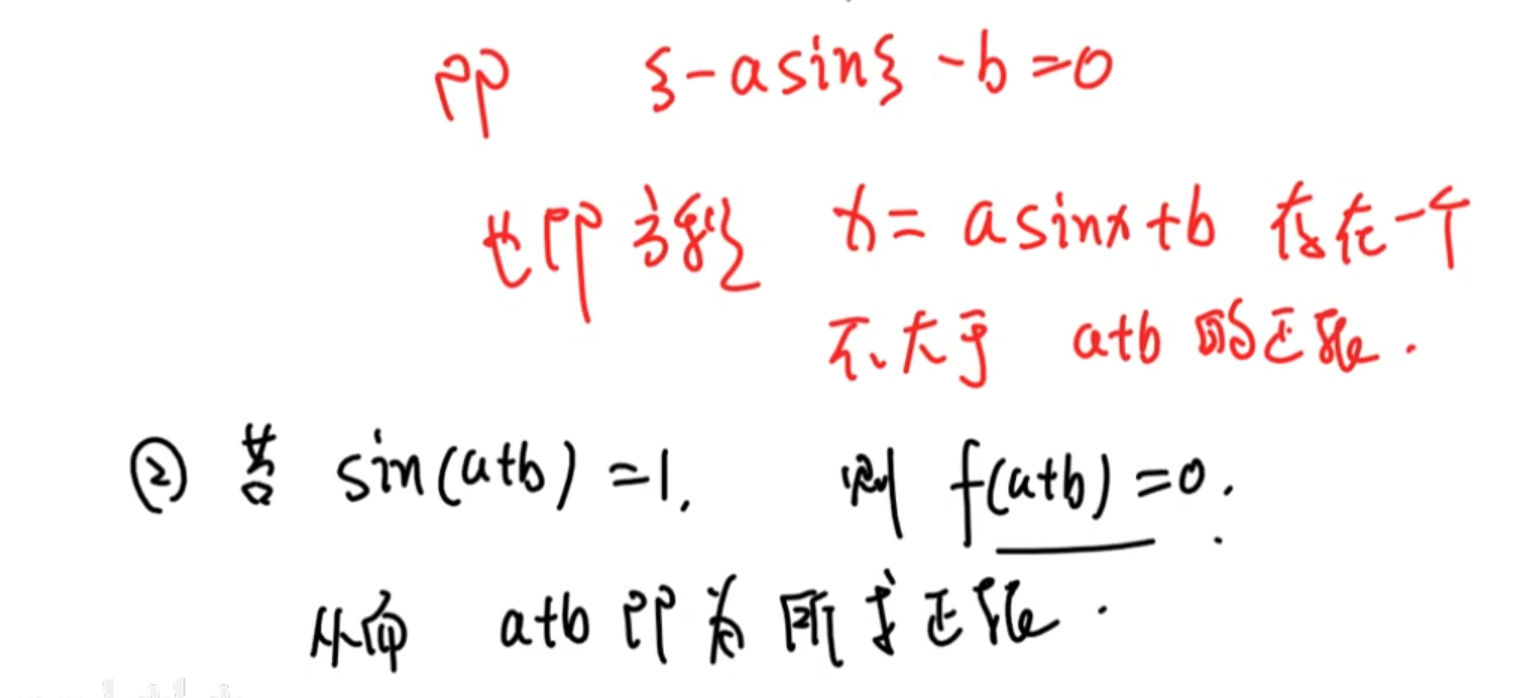 即 ξ-asinξ-b=0
也即方程 x=asinx+b 存在一个
不大于 a+b 的正根.
② 若 sin(a+b)=1, 则 f(a+b)=0.
从而 a+b 即为所求正根.